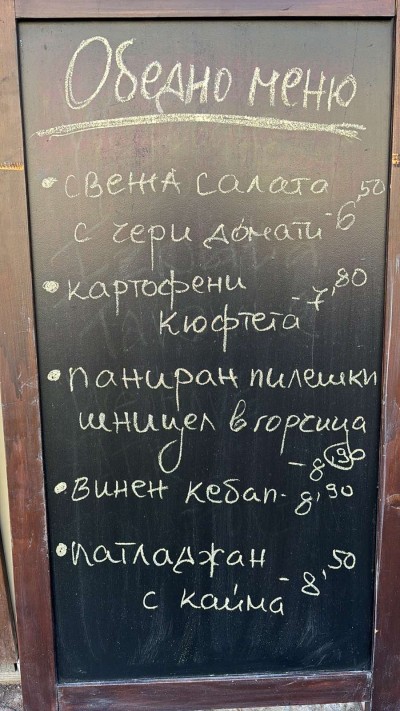 Обедно меню
• свежа салата
с чери домати - 6,50
• картофени
кюфтета - 7,80
• паниран пилешки
шницел в горчица
- 8,90
• винен кебап - 8,90
• патладжан
с кайма - 8,50